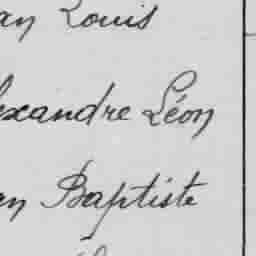 an Louis
exandre Léon
an Baptiste